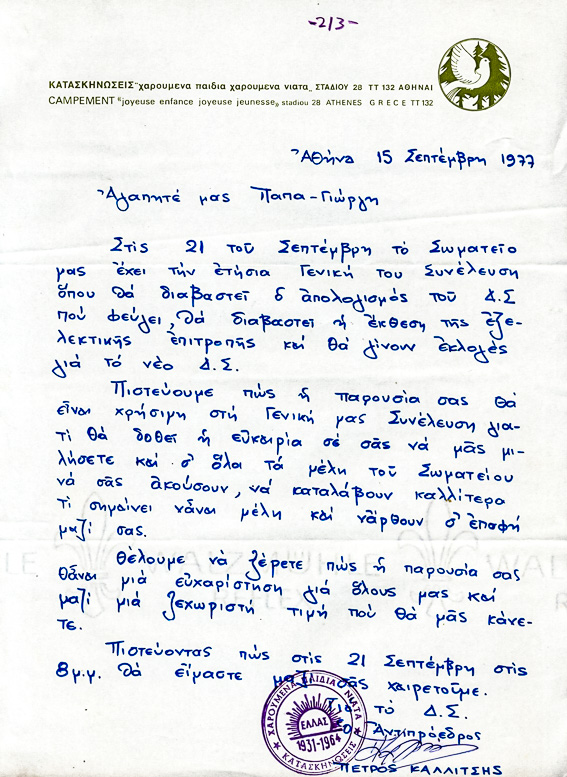 -2/3-
ΚΑΤΑΣΚΗΝΩΣΕΙΣ "χαρουμενα παιδια χαρουμενα νιατα" ΣΤΑΔΙΟΥ 28 ΤΤ 132 ΑΘΗΝΑΙ
CAMPEMENT "joyeuse enfance joyeuse jeunesse" stadiou 28 ATHENES GRECE TT 132
Ἀθήνα 15 Σεπτέμβρη 1977
Ἀγαπητέ μας Παπα-Γιώργη
Στίς 21 τοῦ Σεπτέμβρη τό Σωματεῖο
μας ἔχει τήν ἐτήσια Γενική του Συνέλευση
ὅπου θά διαβαστεῖ ὁ ἀπολογισμός τοῦ Δ.Σ
πού φεύγει, θά διαβαστεῖ ἡ ἔκθεση τῆς ἐξε-
λεκτικῆς ἐπιτροπῆς καί θά γίνουν ἐκλογές
γιά τό νέο Δ.Σ.
Πιστεύουμε πώς ἡ παρουσία σας θά
εἶναι χρήσιμη στή Γενική μας Συνέλευση για-
τί θά δοθεῖ ἡ εὐκαιρία σέ σᾶς νά μᾶς μι-
λήσετε καί σ' ὅλα τά μέλη τοῦ Σωματείου
νά σᾶς ἀκούσουν, νά καταλάβουν καλλίτερα
τί σημαίνει νἆναι μέλη καί νἄρθουν σ' ἐπαφή
μαζί σας.
Θέλουμε νά ξέρετε πώς ἡ παρουσία σας
θἆναι μιά εὐχαρίστηση γιά ὅλους μας καί
μαζί μιά ξεχωριστή τιμή πού θά μᾶς κάνε-
τε.
Πιστεύοντας πώς στίς 21 Σεπτέμβρη στίς
8 μ.μ. θά εἴμαστε μαζί σᾶς χαιρετοῦμε.
Για τό Δ.Σ.
Ὁ Ἀντιπρόεδρος
ΠΕΤΡΟΣ ΚΑΛΛΙΤΣΗΣ
ΧΑΡΟΥΜΕΝΑ ΠΑΙΔΙΑ ΝΙΑΤΑ
ΕΛΛΑΣ
1931-1964
ΚΑΤΑΣΚΗΝΩΣΕΙΣ